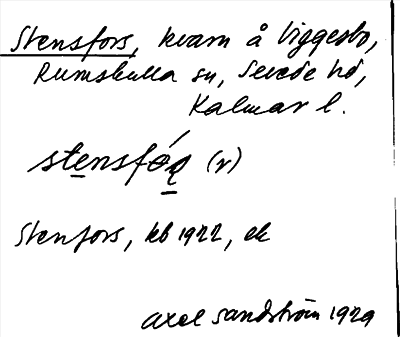 Stensfors, kvarn å Viggesbo,
Rumskulla sn, Sevede hd,
Kalmar l.
stensfóɽ (r)
Stenfors, kb 1922, ek
Axel Sandström 1929